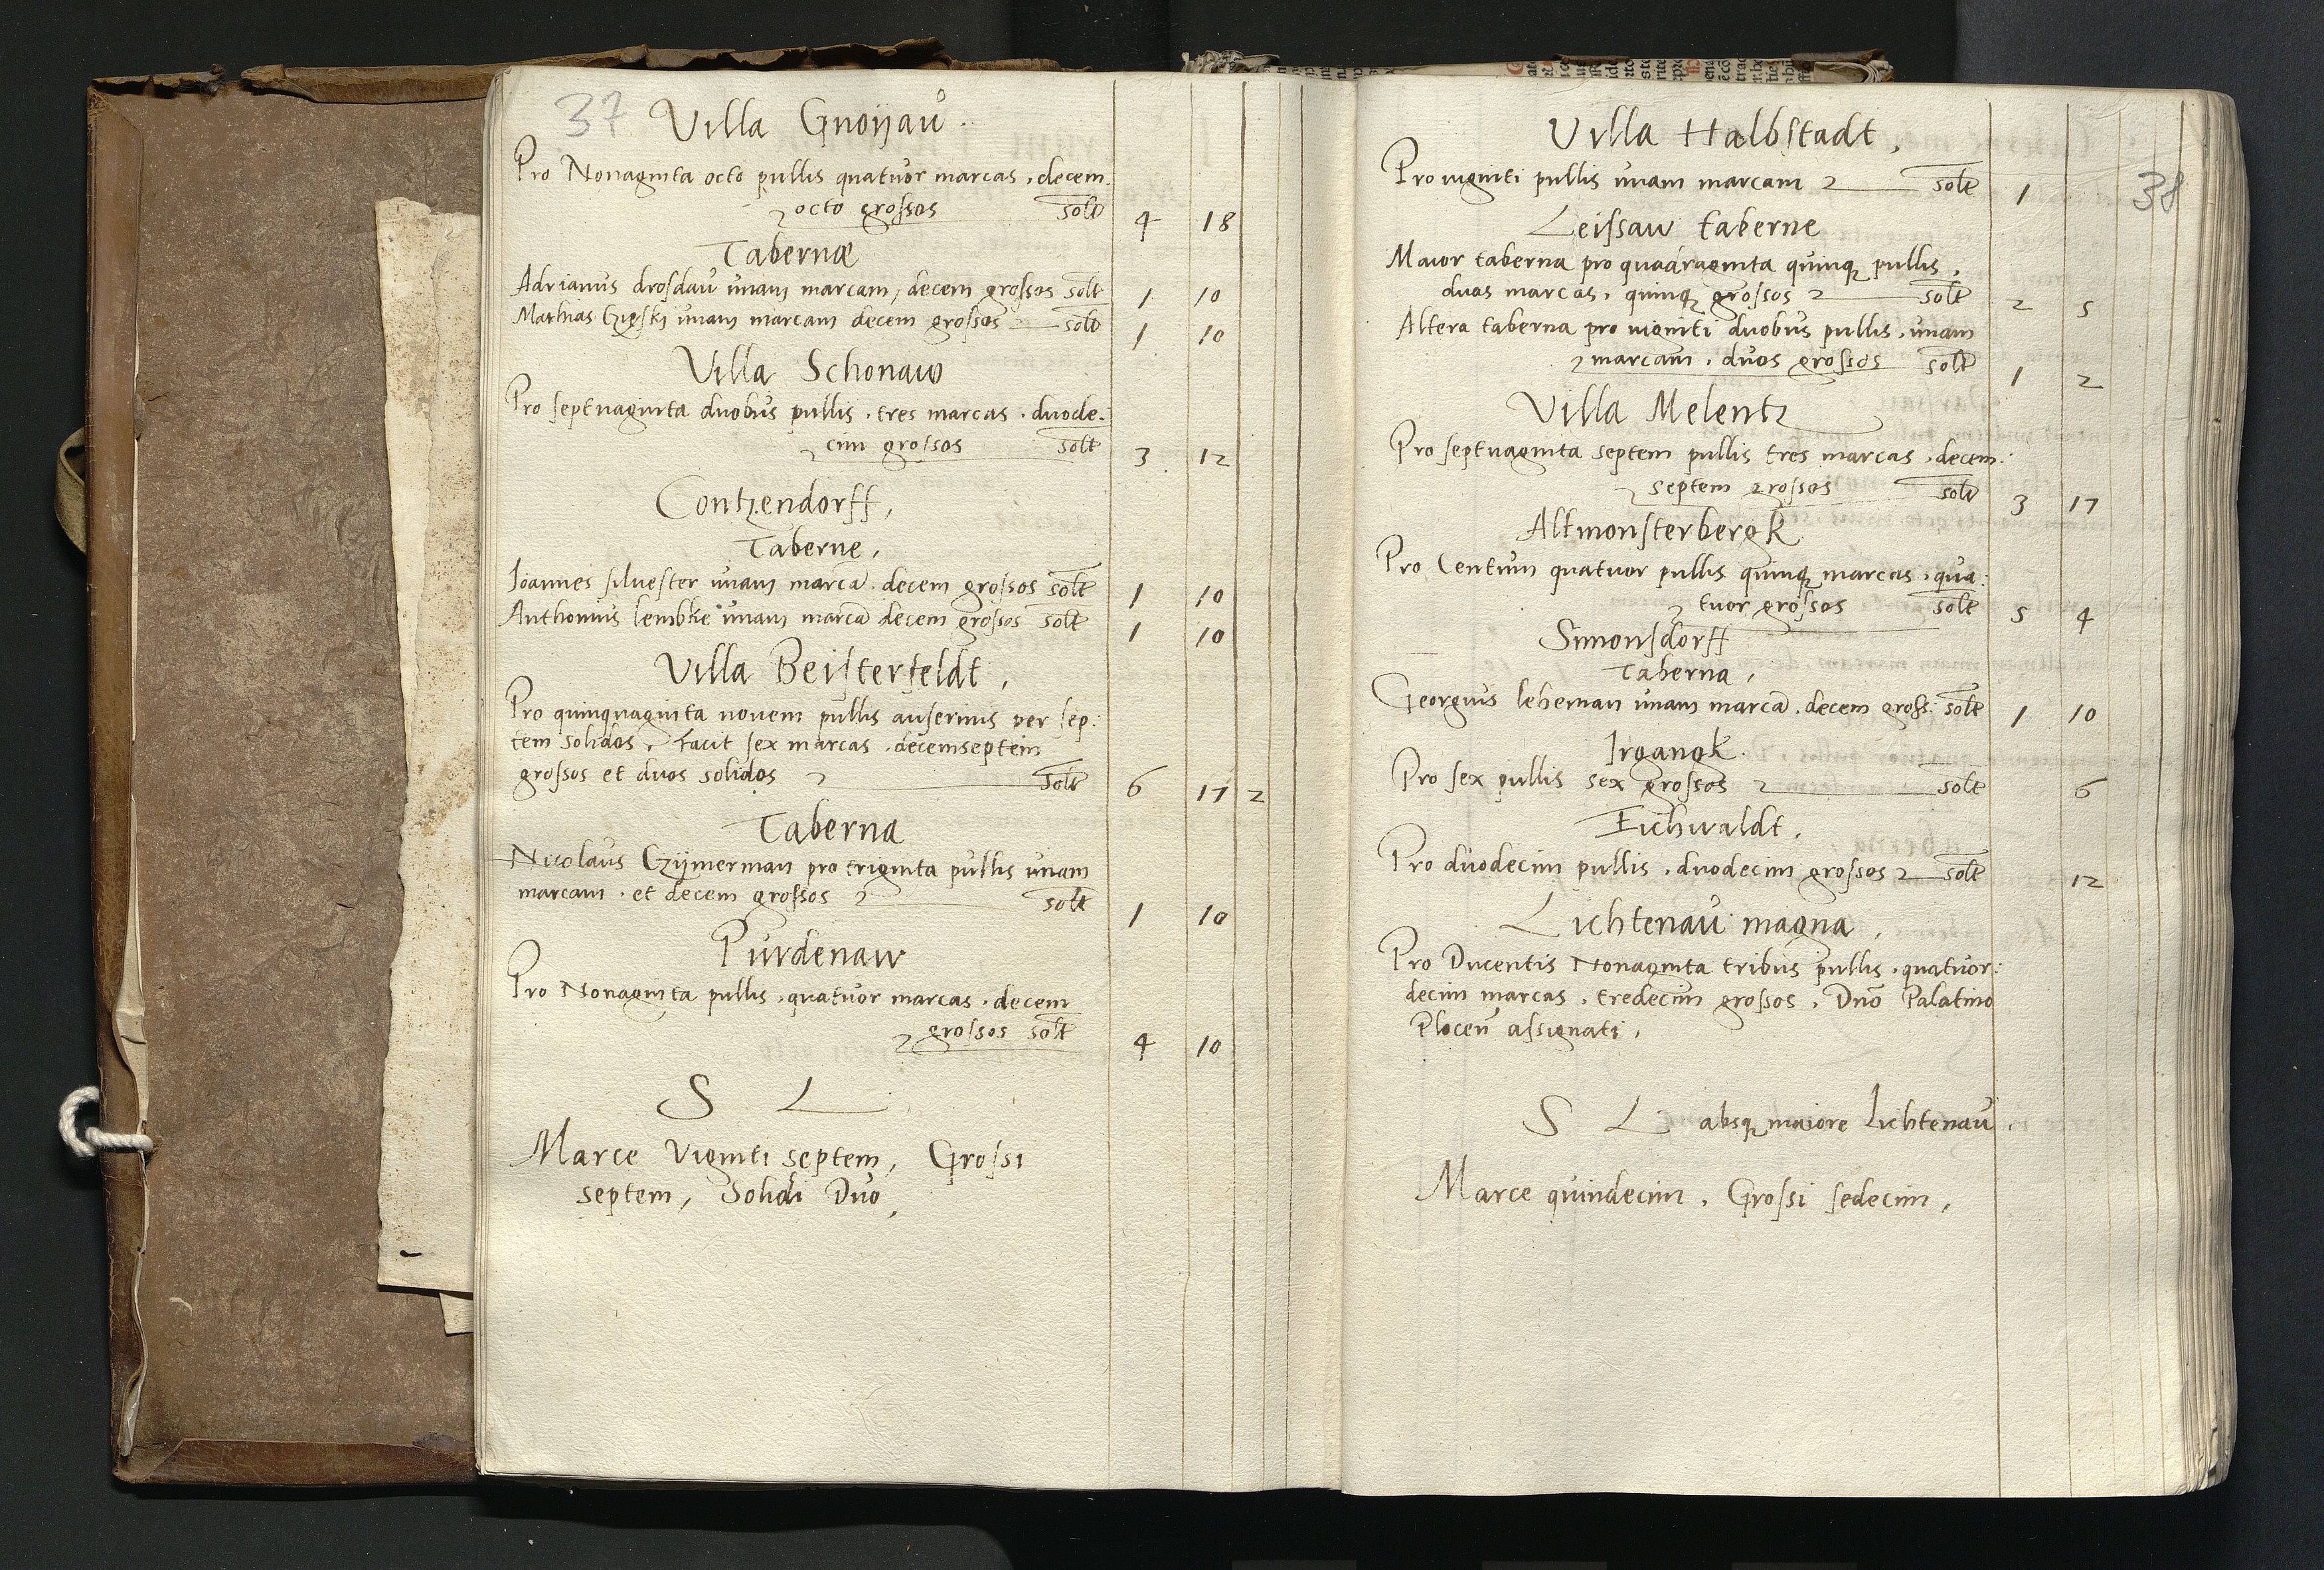 37 Villa Gnoÿaů.
Pro Nonaginta octo pullis quatuor marcas, decem:
octo grossos solt 4 18
Tabernæ
Adrianus drosdaů unam marcam, decem grossos solt 1 10
Mathias unam marcam decem grossos solt 1 10
Villa Schonaw
Pro septuaginta duobus pullis, tres marcas, duode:
cim grossos solt 3 12
Contzendorff,
Taberne,
Joannes silvester unam marcā decem grossos solt 1 10
Anthonius lembke unam marcā decem grossos solt 1 10
Villa Beisterfeldt,
Pro quinquaginta novem pullis anserinis per sep:
tem solidos, facit sex marcas, decemseptem
grossos et duos solidos solt 6 17 2
Taberna
Nicolaus Czÿmerman pro triginta pullis unam
marcam, et decem grossos solt 1 10
Purdenaw
Pro Nonaginta pullis, quatuor marcas, decem
grossos solt 4 10
S L
Marce Viginti septem, Grossi
septem, Solidi Duo,
38
Villa Halbstadt,
Pro viginti pullis unam marcam solt 1
Leissaw taberne
Maior taberna pro quadraginta quinq pullis,
duas marcas, quinq grossos solt 2 5
Altera taberna pro viginti duobus pullis, unam
marcam, duos grossos solt 1 2
Villa Melentz
Pro septuaginta septem pullis tres marcas, decem:
septem grossos solt 3 17
Altmonsterbergk
Pro Centum quatuor pullis quinq marcas, qua:
tuor grossos solt 5 4
Simonsdorff
Taberna,
Georgius leheman unam marcā, decem gross: solt 1 10
Irgangk.
Pro sex pullis sex grossos solt 6
Eichwaldt,
Pro duodecim pullis, duodecim grossos solt 12
Lichtenau magna,
Pro Ducentis Nonaginta tribus pullis, quatuor:
decim marcas, tredecim grossos, Dno Palatino
Plocen assignati,
S L absq maiore Lichtenau,
Marce quindecim, Grossi sedecim,